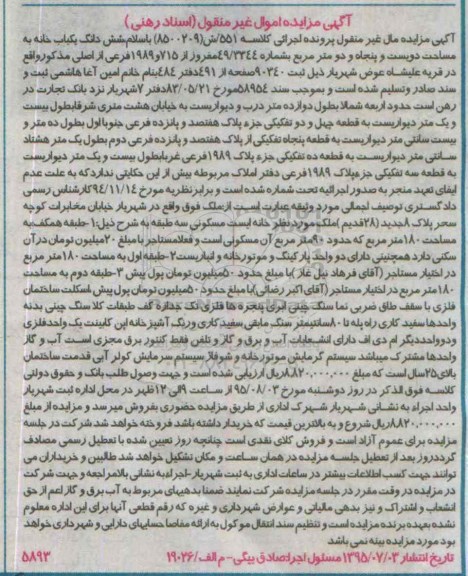 آگهی مزایده اموال غیر منقول (اسناد رهنی)
آگهی مزایده مال غیر منقول پرونده اجرائی کلاسه ۵۵۱/ش(۸۵۰۰۲۰۹) باسلام.شش دانگ یکباب خانه به
مساحت دویست و پنجاه و دو متر مربع بشماره ۴۹/۳۳۴۴مفروز از ۷۱۵و۱۹۸۹فرعی از اصلی مذکورواقع
در قریه علیشاه عوض شهریار ذیل ثبت ۹۰۳۴۰صفحه از ۴۹۱دفتر ۴۸۴بنام خانم امین آغا هاشمی ثبت و
سند صادر وتسلیم شده است و بموجب سند ۵۸۹۵۴مورخ ۸۳/۰۵/۲۱دفتر ۷شهریار نزد بانک تجارت در
رهن است حدود اربعه شمالا بطول دوازده متر درب و دیواریست به خیابان هشت متری شرقابطول بیست
و یک متر دیواریست به قطعه چهل و دو تفکیکی جزء پلاک هفتصد و پانزده فرعی جنوبا اول بطول ده متر و
بیست سانتی متر دیواریست به قطعه پنجاه تفکیکی از پلاک هفتصد و پانزده فرعی دوم بطول یک متر هشتاد
سانتی متر دیواریست به قطعه ده تفکیکی جزء پلاک ۱۹۸۹فرعی غربابطول بیست و یک متر دیواریست
به قطعه سه تفکیکی جزءپلاک ۱۹۸۹فرعی دفتر املاک مربوطه بیش از این حکایتی نداردکه به علت عدم
ایفای تعهد منجر به صدور اجرائیه تحت شماره شده است و برابرنظریه مورخ ۹۴/۱۱/۱۴کارشناس رسمی
دادگستری توصیف اجمالی مورد وثیقه عبارت است از:ملک فوق واقع در شهریار خیابان مخابرات کوچه
سحر پلاک ۸جدید (۲۸قدیم )ملک مورد نظر خانه ایست مسکونی سه طبقه به شرح ذیل:۱-طبقه همکف به
مساحت ۱۸۰متر مربع که حدود ۵۰متر مربع آن مسکونی است و فعلامستاجر با مبلغ ۲۰میلیون تومان در آن
سکنی دارد همچنین دارای دو واحد پارکینگ و موتورخانه و انباریست۲-طبقه اول به مساحت ۱۸۰متر مربع
در اختیار مستاجر (آقای فرهاد نیل غاز )با مبلغ حدود ۵۰میلیون تومان پول پیش ۳-طبقه دوم به مساحت
۱۸۰متر مربع در اختیار مستاجر (آقای اکبر رضائی )با مبلغ حدود ۵۰میلیون تومان پول پیش.اسکلت ساختمان
فلزی با سقف طاق ضربی نما سنگ چینی بری پنجره ها فلزی تک جداره کف طبقات کلا سنگ چینی بدنه
واحدها سفید کاری راه پله تا ۸۰سانتیمتر سنگ مابقی سفیدکاری ورنگ آشپزخانه اپن کابینت یک واحدفلزی
ودوواحددیگر ام دی اف دارای انشعابات آب و برق و گاز و تلفن فقط کنتور برق مجزی است آب و گاز
واحدها مشترک میباشد سیستم گرمایش موتورخانه و شوفاژ سیستم سرمایش کولر آبی قدمت ساختمان
بالای۲۵سال است که مبلغ ۸۸۲۰،۰۰۰،۰۰۰ریال ارزیابی شده است و جهت وصول طلب بانک و حقوق دولتی
کلاسه فوق الذکر در روز دوشنبه مورخ ۹۵/۰۸/۰۳ از ساعت ۹الی ۱۲ظهر در محل اداره ثبت شهریار
واحد اجراء به نشانی شهریار شهرک اداری از طریق مزایده حضوری بفروش میرسد و مزایده از مبلغ
۸۸۲۰،۰۰۰،۰۰۰ریال شروع و به بالاترین قیمت که خریدار داشته باشد فروخته خواهد شد شرکت در جلسه
مزایده برای عموم آزاد است و فروش کلای نقدی است چنانچه روز تعیین شده با تعطیل رسمی مصادف
گردد روز بعد از تعطیل جلسه مزایده در همان ساعت و مکان تشکیل خواهد شد طالبین و خریداران می
توانند جهت کسب اطلاعات بیشتر در ساعات اداری به ثبت شهریار-اجراء به نشانی بالامراجعه و جهت شرکت
در مزایده در وقت مقرر در جلسه مزایده شرکت نمایند ضمنا بدهیهای مربوط به آب برق و گاز اعم از حق
انشعاب و اشتراک و نیز بدهی مالیاتی و عوارض شهرداری و غیره که رقم قطعی آنها برای این اداره معلوم
نشده بعهده برنده مزایده است و تنظیم سند انتقال موکول به ارائه مفاصا حسابهای دارایی و شهرداری خواهد
بود مورد مزایده بیمه نمی باشد
تاریخ انتشار ۱۳۹۵/۰۷/۰۳ مسئول اجرا:صادق بیگی- م الف/۱۹۰۲۶ ۵۸۹۳